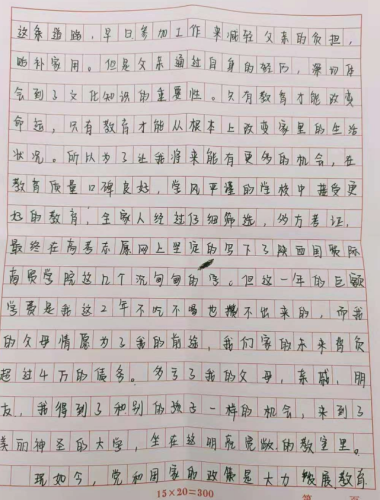 这条道路，早日参加工作来减轻父亲的负担，
贴补家用。但是父亲通过自身的经历，深切体
会到了文化知识的重要性。只有教育才能改变
命运，只有教育才能从根本上改变家里的生活
状况。所以为了让我将来能有更多的机会，在
教育质量口碑良好，学风严谨的学校中接受更
好的教育，全家人经过仔细筛选，多方考证，
最终在高考志愿网上坚定的写下了陕西国际
商贸学院这几个沉甸甸的字。但这一年的巨额
学费是我这2年不吃不喝也攒不出来的，而我
的父母情愿为了我的前途，我们家的未来背负
超过4万的债务。多亏了我的父母，亲戚，朋
友，我得到了和别的孩子一样的机会，来到了
美丽神圣的大学，坐在这明亮宽敞的教室里。
现如今，党和国家的政策是大力发展教育
15×20=300
第 页